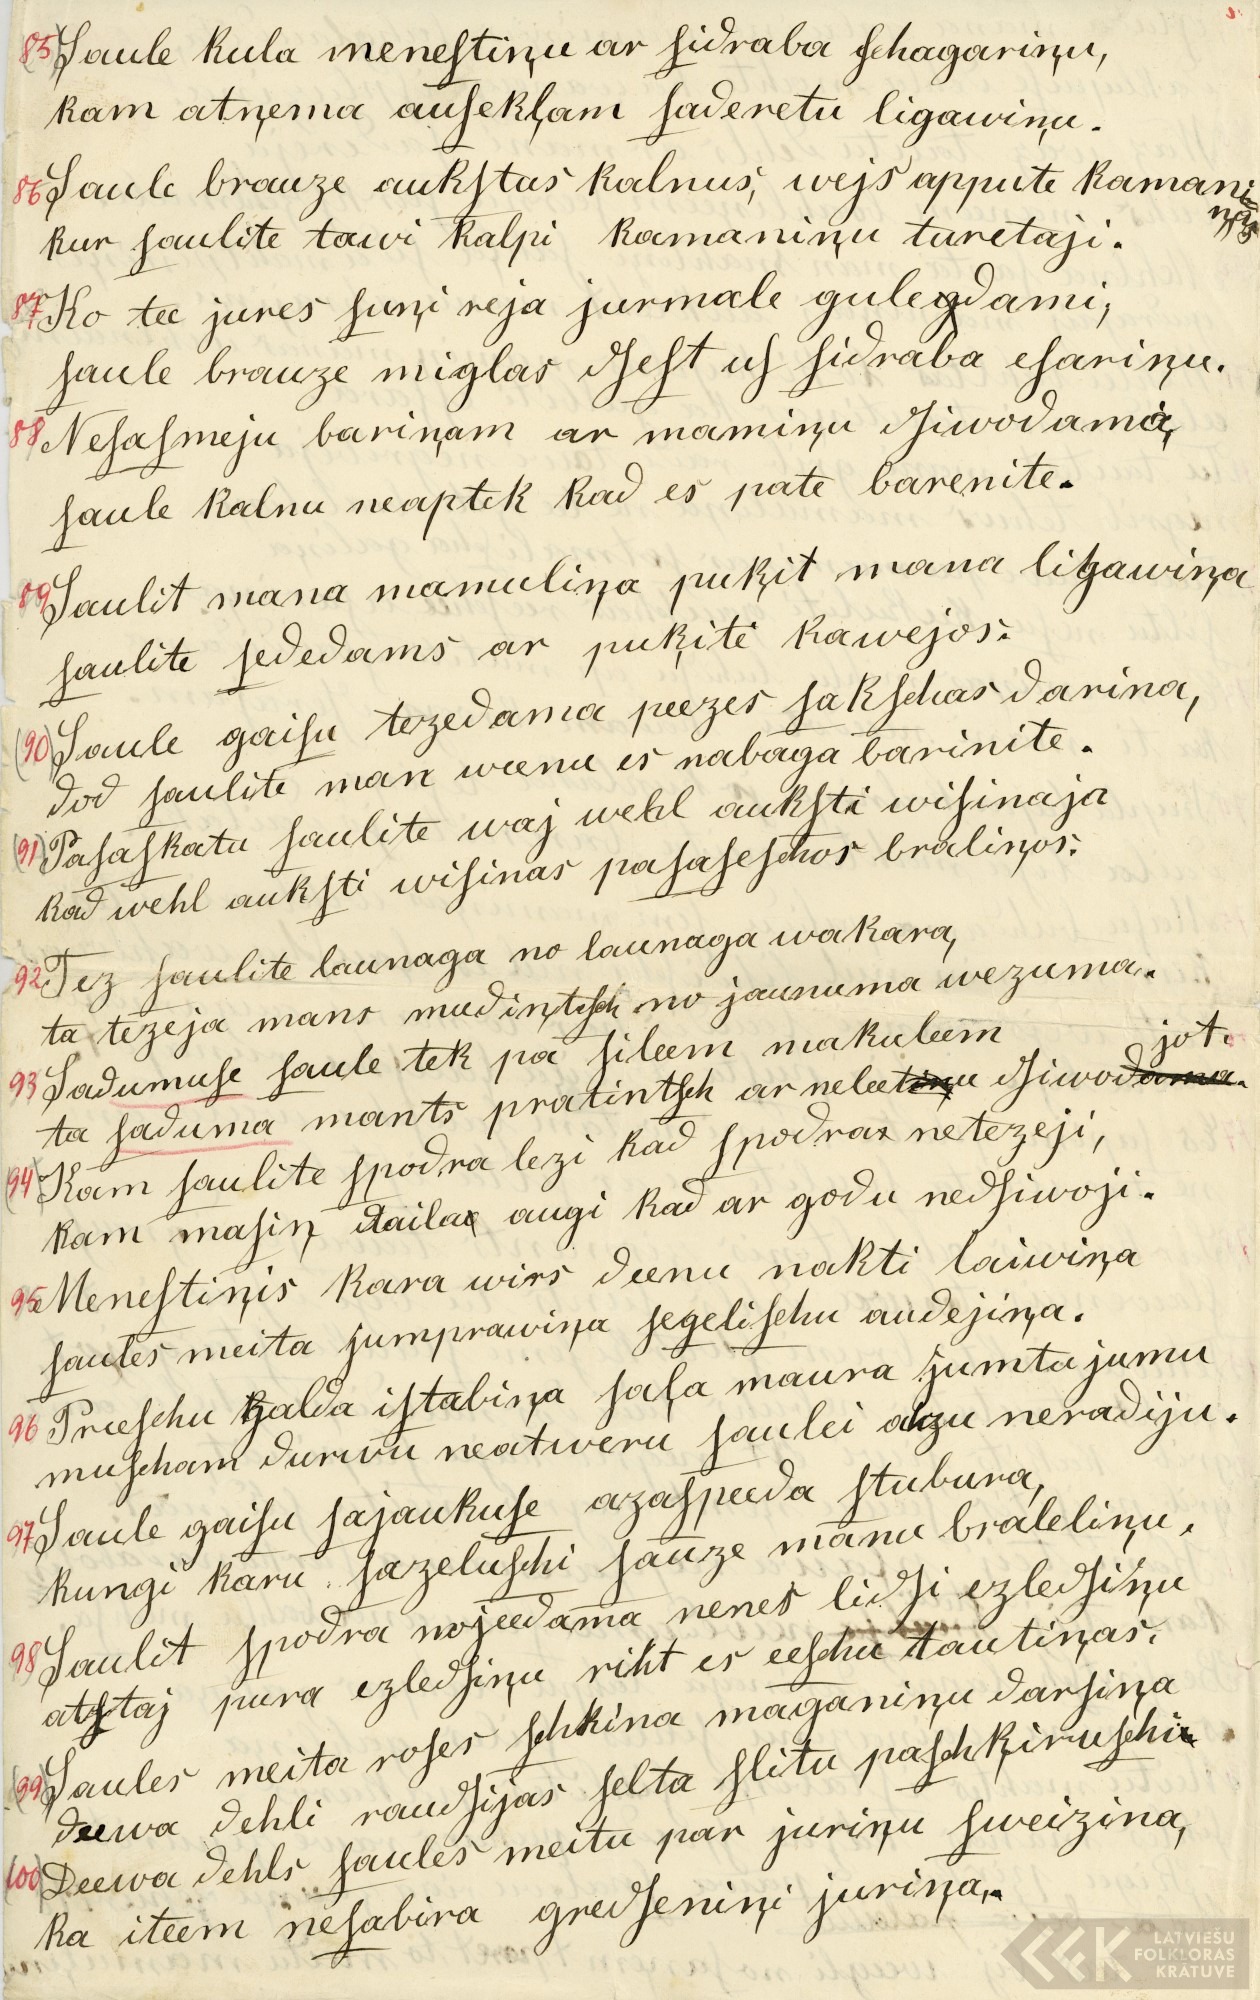 85) Saule kula menestiņu ar sidraba schagariņu,
kam atņema ausekļam saderetu ligawiņu.
86 Saule brauze aukstus kalnus, wejs appute kamani
ņas
kur saulite tawi kalpi kamaniņu turetaji.
87 Ko tee jures suņi reja jurmale guledami,
saule brauze miglas dsest us sidraba esariņu.
88 Nesasmeju bariņam ar mamiņu dsiwodama,
saule kalnu neaptek kad es pate barenite.
89 Saulit mana mamuliņa puķit mana ligawiņa
saulite sededams ar puķiti kawejos.
(90) Saule gaisu tezedama peezes sakschas darina,
dod saulite man weenu es nabaga barinite.
(91) Pasaskatu saulite waj wehl auksti wisinaja
kad wehl auksti wisinas pasaseschos braliņos.
92 Tez saulite launaga no launaga wakara,
ta tezeja mans mudintsch no jaunuma wezuma.
93 Sadumuse saule tek pa sileem makuleem
jot.
ta saduma mants pratintsch ar neleetiņu dsiwodama.
(94) Kam saulite spodra lezi kad spodra netezeji,
kam masiņ daila augi kad ar godu nedsiwoji.
95 Menestiņis kara wirs deenu nakti laiwiņa
saules meita jumprawiņa segelischu audejiņa.
96 Preeschu galda istabiņa sala maura jumta jumu
muscham durwu neatweru saulei akzu neradiju.
97 Saule gaisu sajaukuse azaspeeda stubura,
kungi karu sazeluschi sauze manu braleliņu.
98 Saulit spodra nojeedama nenes lidsi ezledsiņu
atstaj pura ezledsiņu riht es eeschu tautiņas.
(99) Saules meita roses schkina maganiņu darsiņa
deewa dehli raudsijas selta slitu paschķiruschi
(100) Deewa dehls saules meitu par juriņu sweizina,
ka iteem nesabira gredseniņi juriņa.
LATVIEŠU
FOLKLORAS
KRĀTUVE